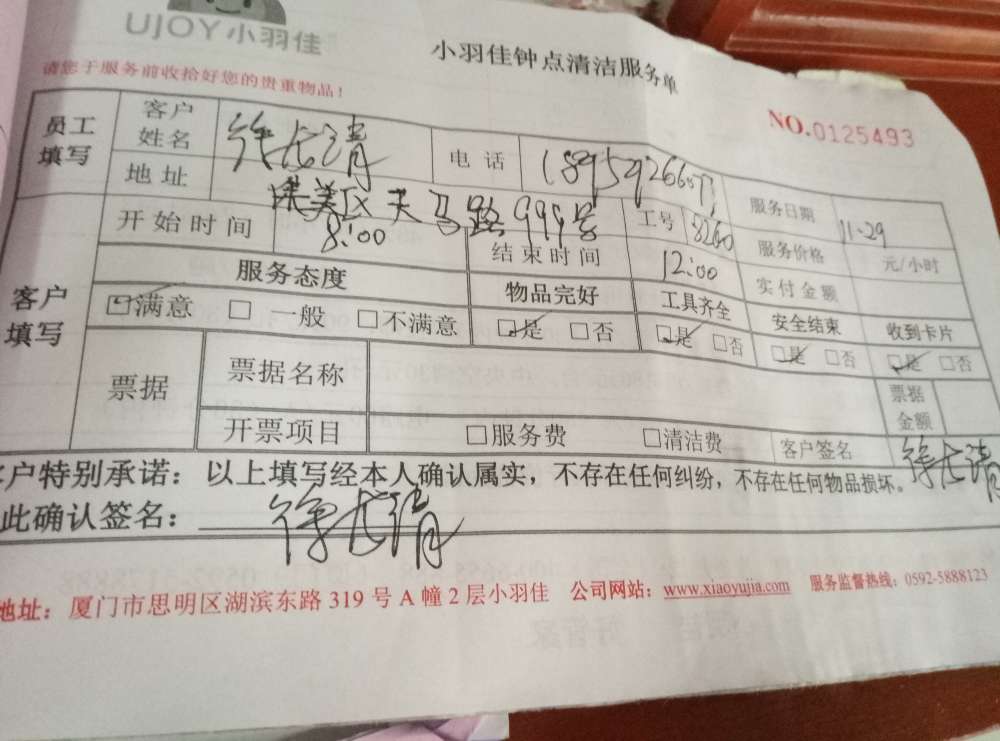 UJOY小羽佳
小羽佳钟点清洁服务单
请您于服务前收拾好您的贵重物品！
NO.0125493
员工填写 客户姓名 徐长清 电话 服务日期 11.29
地址 集美区天马路999号 工号 8260 服务价格 元/小时
客户填写 开始时间 8:00 结束时间 12:00 实付金额
服务态度 物品完好 工具齐全 安全结束 收到卡片
☑满意 □一般 □不满意 ☑是 □否 ☑是 □否 ☑是 □否 ☑是 □否
票据 票据名称 票据金额
开票项目 □服务费 □清洁费 客户签名 徐长清
客户特别承诺：以上填写经本人确认属实，不存在任何纠纷，不存在任何物品损坏。
此确认签名： 徐长清
地址：厦门市思明区湖滨东路 319 号 A 幢 2 层小羽佳 公司网站：www.xiaoyujia.com 服务监督热线：0592-5888123